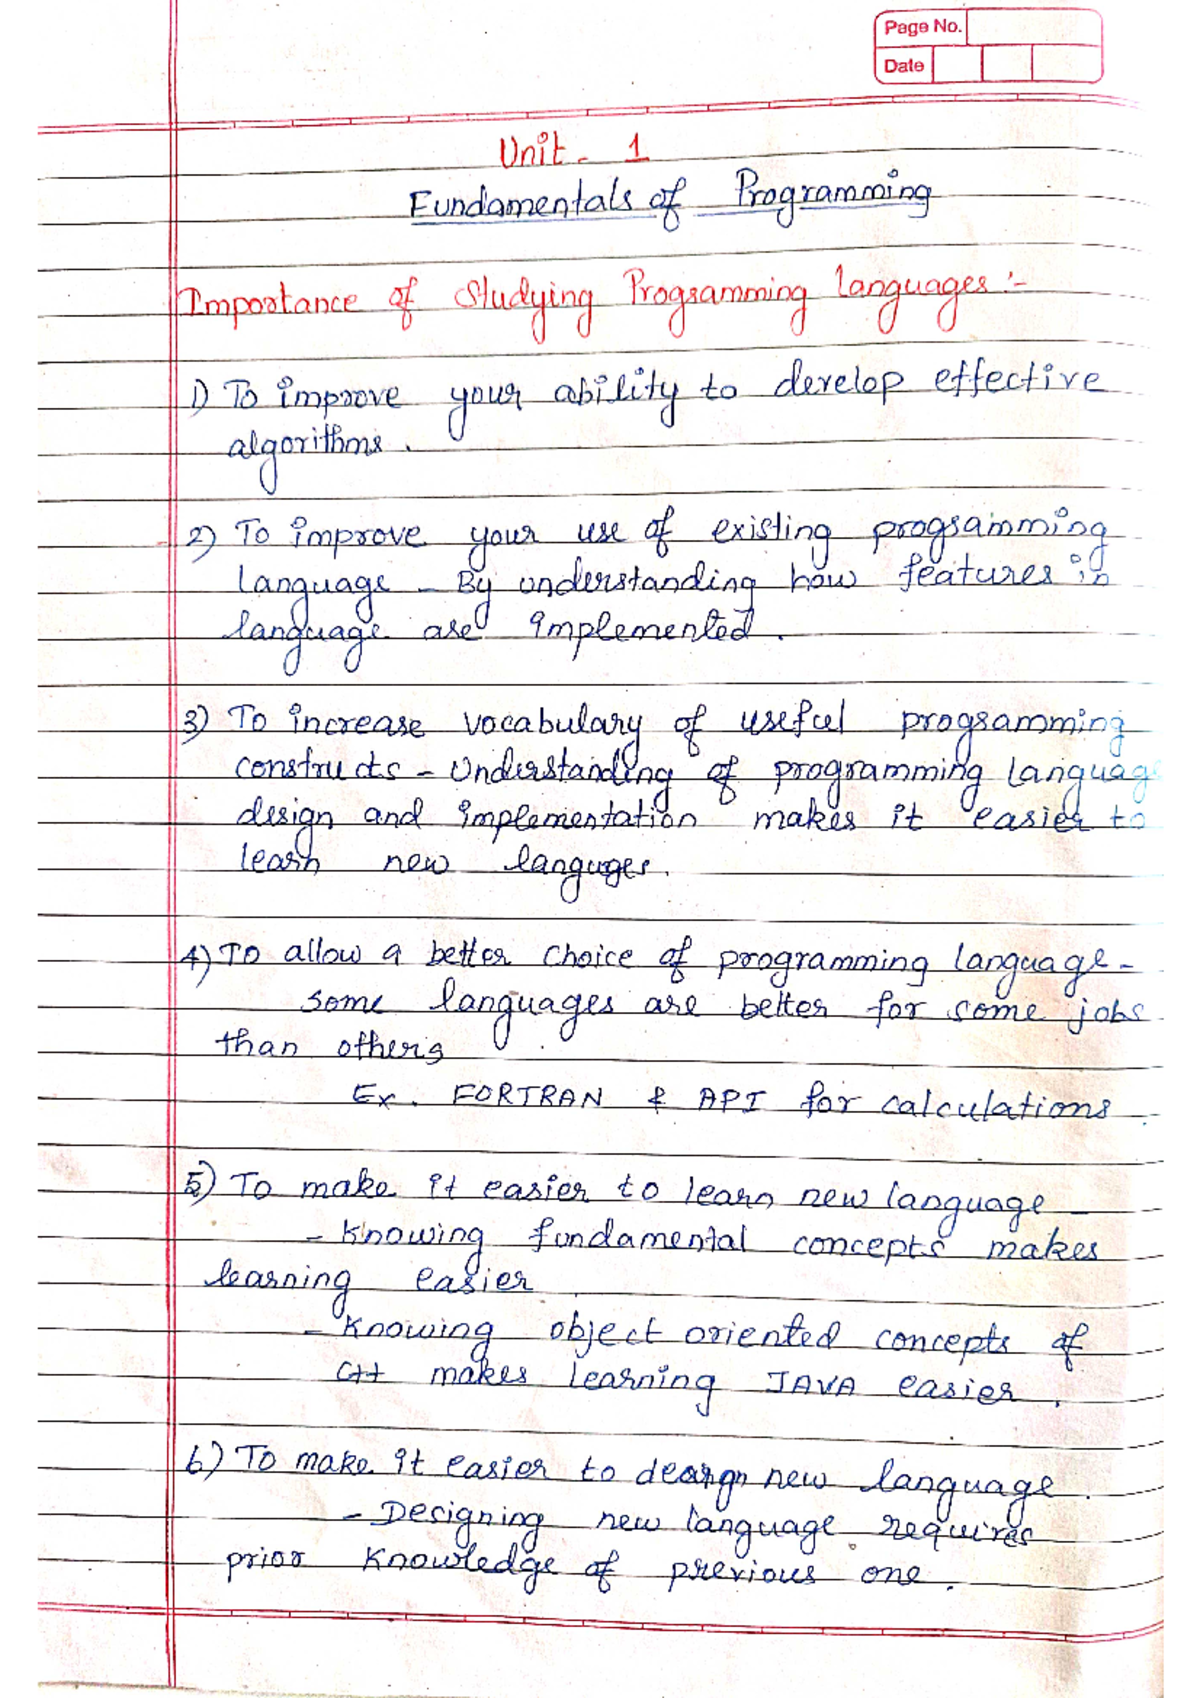 Page No.
Date
Unit - 1
Fundamentals of Programming
Importance of Studying Programming Languages :-
1) To improve your ability to develop effective
algorithms.
2) To improve your use of existing programming
language - By understanding how features in
language are implemented.
3) To increase vocabulary of useful programming
constructs - Understanding of programming languag
design and implementation makes it easier to
learn new languges.
4) To allow a better choice of programming language -
some languages are better for some jobs
than others
Ex. FORTRAN & API for calculations
5) To make it easier to learn new language -
- Knowing fundamental concepts makes
learning easier
- Knowing object oriented concepts of
C++ makes learning JAVA easier.
6) To make it easier to new language.
- Designing new language requires
prior knowledge of previous one.